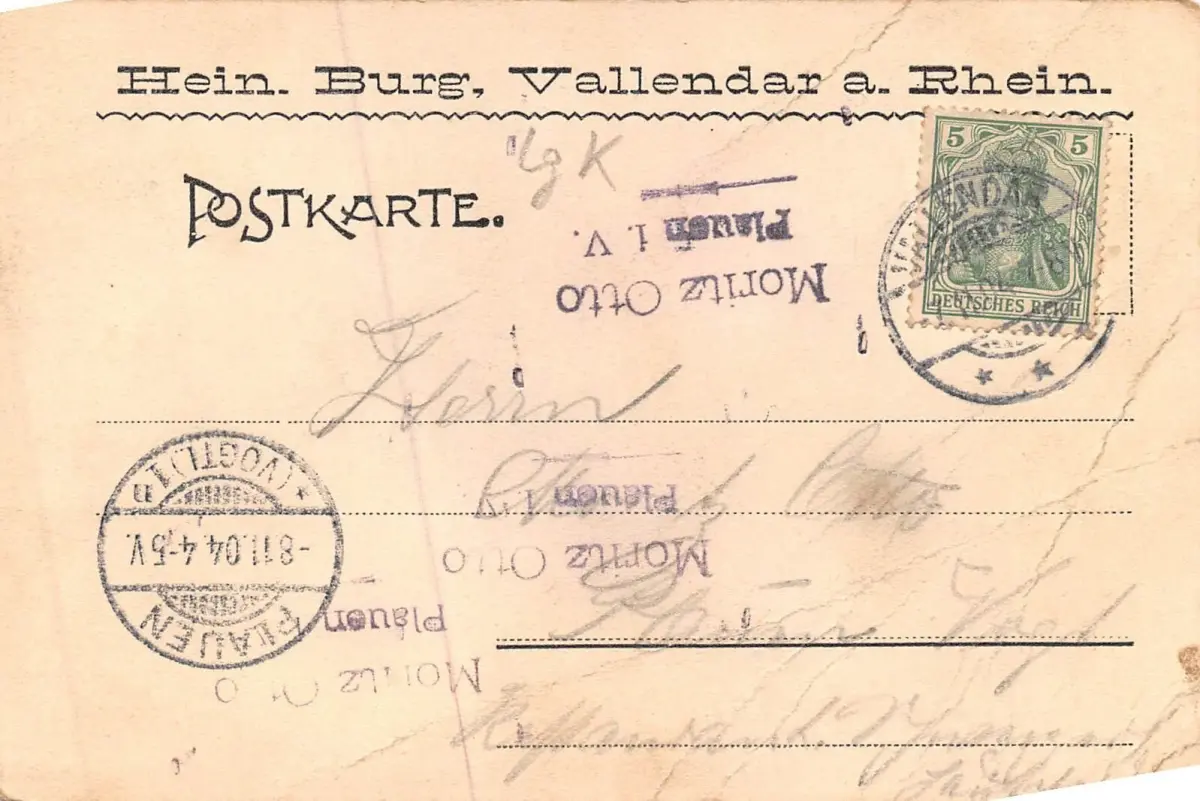 Hein. Burg, Vallendar a. Rhein.
POSTKARTE.
5 5
DEUTSCHES REICH
VALLENDAR
Moritz Otto
Plauen i. V.
Herrn
Otto
Plauen Vogt
Moritz Otto
Plauen i V
Moritz Otto
Plauen
PLAUEN
-8.11.04.4-5V.
*(VOGTL.)1n